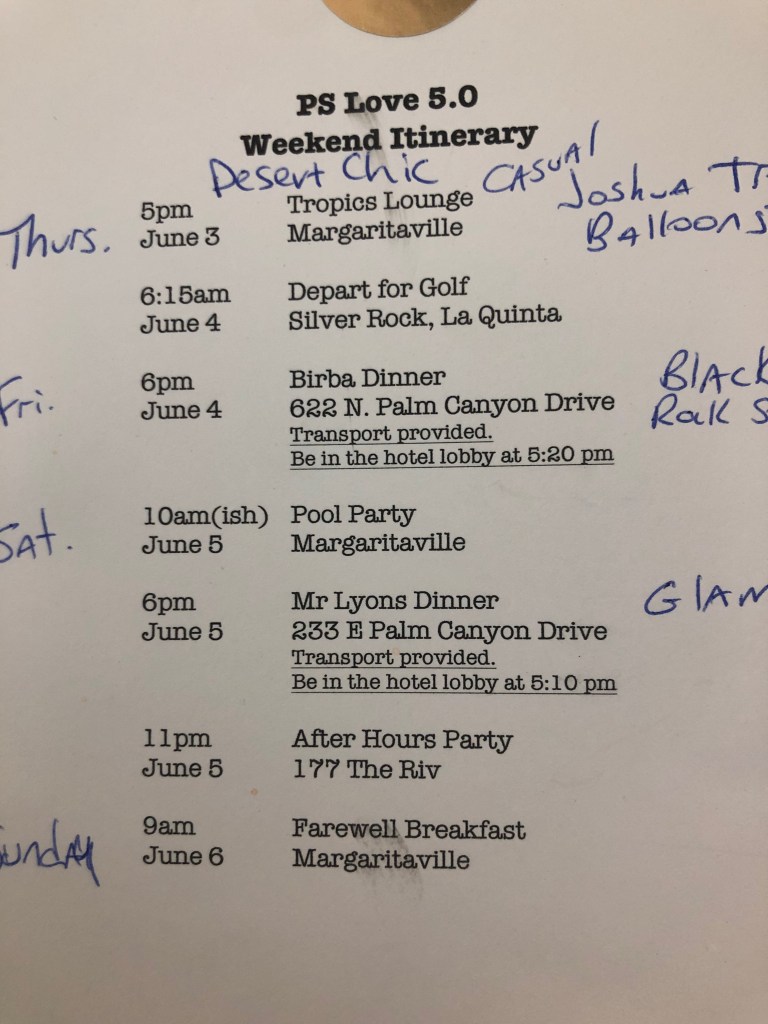 PS Love 5.0
Weekend Itinerary
Desert Chic CASUAl
Joshua Tr
Balloons
Thurs.
5pm Tropics Lounge
June 3 Margaritaville
6:15am Depart for Golf
June 4 Silver Rock, La Quinta
Fri.
6pm Birba Dinner
June 4 622 N. Palm Canyon Drive
Transport provided.
Be in the hotel lobby at 5:20 pm
Black
Sat.
10am(ish) Pool Party
June 5 Margaritaville
6pm Mr Lyons Dinner
June 5 233 E Palm Canyon Drive
Transport provided.
Be in the hotel lobby at 5:10 pm
Glam
11pm After Hours Party
June 5 177 The Riv
unday
9am Farewell Breakfast
June 6 Margaritaville